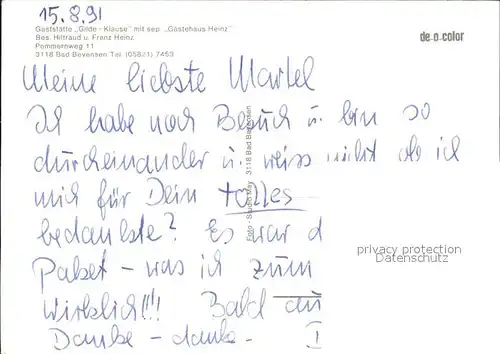 15.8.91
Gaststätte „Gilde-Klause" mit sep. „Gästehaus Heinz"
Bes. Hiltraud u. Franz Heinz
Pommernweg 11
3118 Bad Bevensen Tel. (05821) 7453
de-o-color
Meine liebste Martel
Ich habe noch Besuch u. bin so
durcheinander u. weiss nicht ob ich
mich für Dein tolles
bedankte? Es war d
Paket – was ich zum
wirklich!!! Bald au
Danke – danke. I
Foto: Studio May 3118 Bad Bevensen
privacy protection
Datenschutz